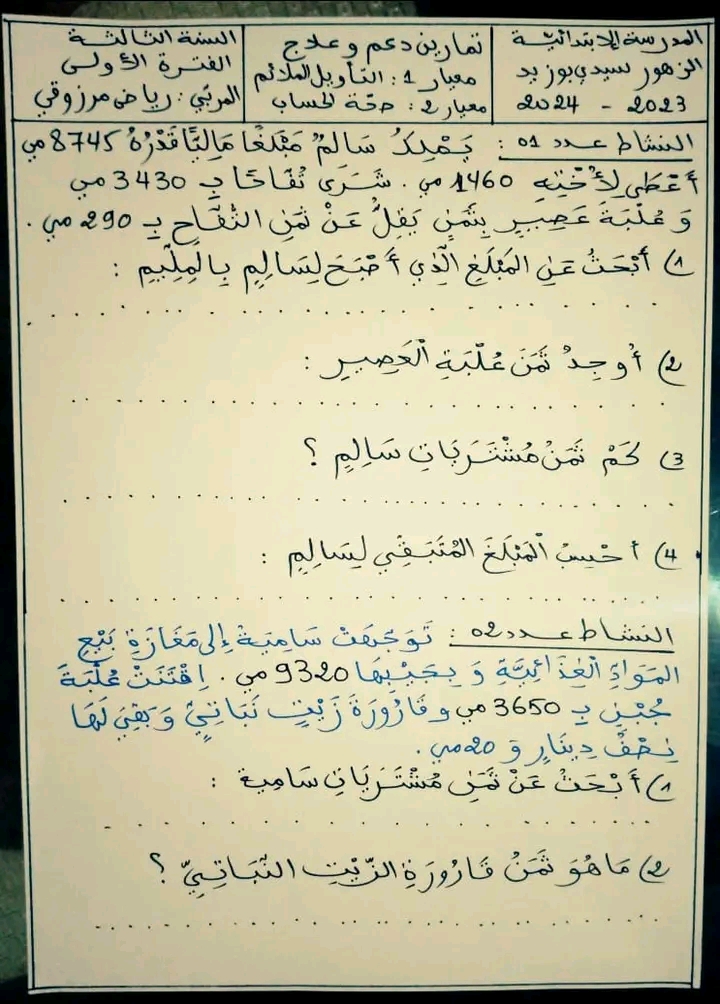 المدرسة الابتدائية
الزهور سيدي بوزيد
2023 - 2024
تمارين دعم وعلاج
معيار 1: التأويل الملائم
معيار 2: صحّة الحساب
السنة الثالثة
الفترة الأولى
المربّي: رياض مرزوقي
النشاط عدد 01: يَمْلِكُ سَالِمٌ مَبْلَغًا مَالِيًّا قَدْرُهُ 8745 مي
أَعْطَى لِأُخْتِهِ 1460 مي. شَرَى تُفَّاحًا بِـ 3430 مي
وَ عُلْبَةَ عَصِيرٍ بِثَمَنٍ يَقِلُّ عَنْ ثَمَنِ التُّفَّاحِ بِـ 290 مي.
1) أَبْحَثُ عَنِ المَبْلَغِ الَّذِي أَصْبَحَ لِسَالِمٍ بِالمِلِّيمِ:
2) أُوجِدُ ثَمَنَ عُلْبَةِ الْعَصِيرِ:
3) كَمْ ثَمَنُ مُشْتَرَيَاتِ سَالِمٍ؟
4) أَحْسِبُ الْمَبْلَغَ المُتَبَقِّي لِسَالِمٍ:
النشاط عدد 02: تَوَجَّهَتْ سَامِيَةُ إِلى مَغَازَةِ بَيْعِ
المَوَادِّ الْغِذَائِيَّةِ وَ بِجَيْبِهَا 9320 مي. اِقْتَنَتْ عُلْبَةَ
جُبْنٍ بِـ 3650 مي وَ قَارُورَةَ زَيْتٍ نَبَاتِيٍّ وَ بَقِيَ لَهَا
نِصْفُ دِينَارٍ وَ 20 مي.
1) أَبْحَثُ عَنْ ثَمَنِ مُشْتَرَيَاتِ سَامية:
2) مَا هُوَ ثَمَنُ قَارُورَةِ الزَّيْتِ النَّبَاتِيِّ؟